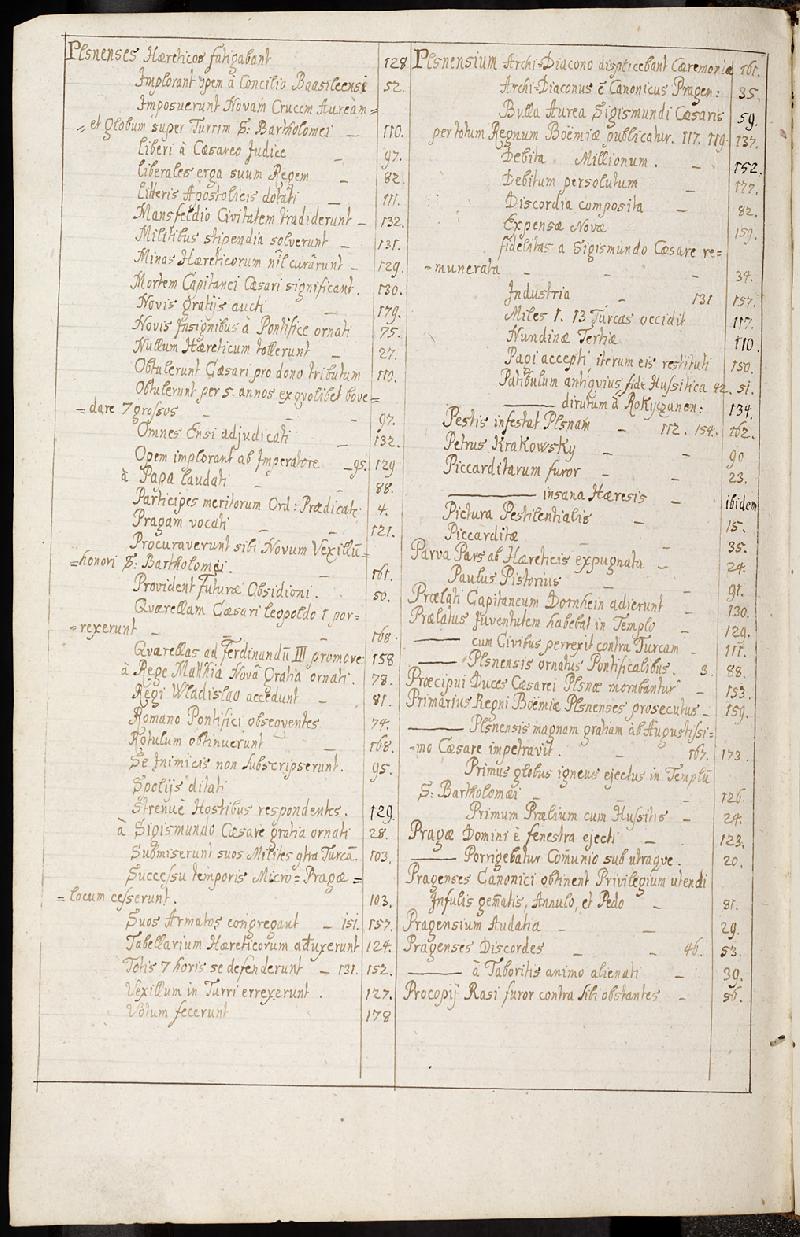 Plsnenses Hæreticos fatigabant 128
Implorant opem à Concilio Baasileensi 52.
Imposuerunt Novam Crucem Auream=
=et globum super Turrim S: Bartholomei – 110.
Liberi à Cæsareo Judice – 97.
Liberales erga suum Regem – 82.
Litteris Apostolicis dotati – 111.
Mansfeldio Civitatem tradiderunt – 132.
Militibus stipendia solverunt – 131.
Minas Hæreticorum nil curârunt – 129.
Mortem Capitanei Cæsari significant. 130.
Novis gratijs aucti – 179.
Novis Insignibus à Pontifice ornati 75.
Nullum Hæreticum tollerunt – 27.
Obtulerunt Cæsari pro dono tributum 110.
Obtulerunt per 5. annos ex quolibet bove=
=dare 7 grossos – – 97.
Omnes Ensi adjudicati – 132.
Opem implorant ab Imperatore –95. 129
à Papa laudati – – 88.
Participes meritorum Ord: Prædicat: 4.
Pragam vocati – – 121.
Procuraverunt sibi Novum Vexillū=
=honori S: Bartholomæi. – 161.
Provident futuræ Obsidioni. – 50.
Quærellam Cæsari Leopoldo I por-
=rexerunt – – 168.
Quærellas ad Ferdinandū III promove: 158
à Rege Mathia Novâ Gratia ornati. 78.
Regi Wladislao accedunt – 81.
Romano Pontifici obsecventes 74.
Rotulum obtinuerunt – 168.
Se Inimicis non subscripserunt. 95.
Spolijs ditati
Strenuè Hostibus respondentes. 129
à Sigismundo Cæsare gratia ornati 28.
Submiserunt suos Milites contra Turcā. 103.
Successu temporis Micro=Pragæ=
=locum cesserunt. 103.
Suos Armatos congregant – 151. 157.
Tabellarium Hæreticorum attuxerunt 124.
Totis 7 horis se defenderunt – 131. 152.
Vexillum in Turri errexerunt. 127.
Votum fecerunt 178
Plsnensium Archi-Diacono displicebant Cæremoniæ 161.
Archi-Diaconus ē Canonicus Pragen: 35.
Bulla Aurea Sigismundi Cæsaris 59.
per totum Regnum Boëmiæ publicatur. 117. 119. 137.
Debita Millionum. – 152.
Debitum persolutum – 177.
Discordia composita – 82.
Expensæ Novæ 159.
fidelitas à Sigismundo Cæsare re=
=munerata – – – 34.
Industria – 131 157.
Miles 1. 13 Turcas occidit 117.
Nundinæ Tertiæ 110
Pagi accepti iterum eis restituti 150.
Patibulum antiquius fide Hussitica 82. 51.
——— dirutum à Rokyczanen: 134.
Pestis infestat Plsnam – 112. 154. 162.
Petrus Krakowsky – 90
Piccarditarum furor – 23.
——— insana Hæresis – ibidem
Pictura Pestilentialis – 15.
Piccarditæ – – 35.
Parva Pars ab Hæreticis expugnata – 24.
Paulus Pistorius – 91.
Prælati Capitaneum Dornhein adierunt – 130.
Prælatus Juventutem habebat in Templo – 129.
——— cum Civibus perrexit contra Turcam – 111.
——— Plsnensis ornatus Pontificalibus. 3. 88.
Præcipui Duces Cæsarei Plsnæ morabantur – 153.
Primarius Regni Boëmiæ Plsnenses prosecutus – 159.
——— Plsnensis magnam gratiam ab Augustissi=
=mo Cæsare impetravit. – 167. 173.
Primus globus igneus ejectus in Templū
S: Bartholomæi – – 126.
Primum Prælium cum Hussitis – 24.
Pragæ Domini è fenestra ejecti – 123.
——— Porrigebatur Comunio sub utraque. 20.
Pragenses Canonici obtinent Privilegium utendi
Infulis gematis, Annulo, et Pedo – 81.
Pragensium Audatia – – 29.
Pragenses Discordes – – 46. 53.
——— à Taboritis animo alienati – 30.
Procopij Rasi furor contra sibi obstantes – 56.